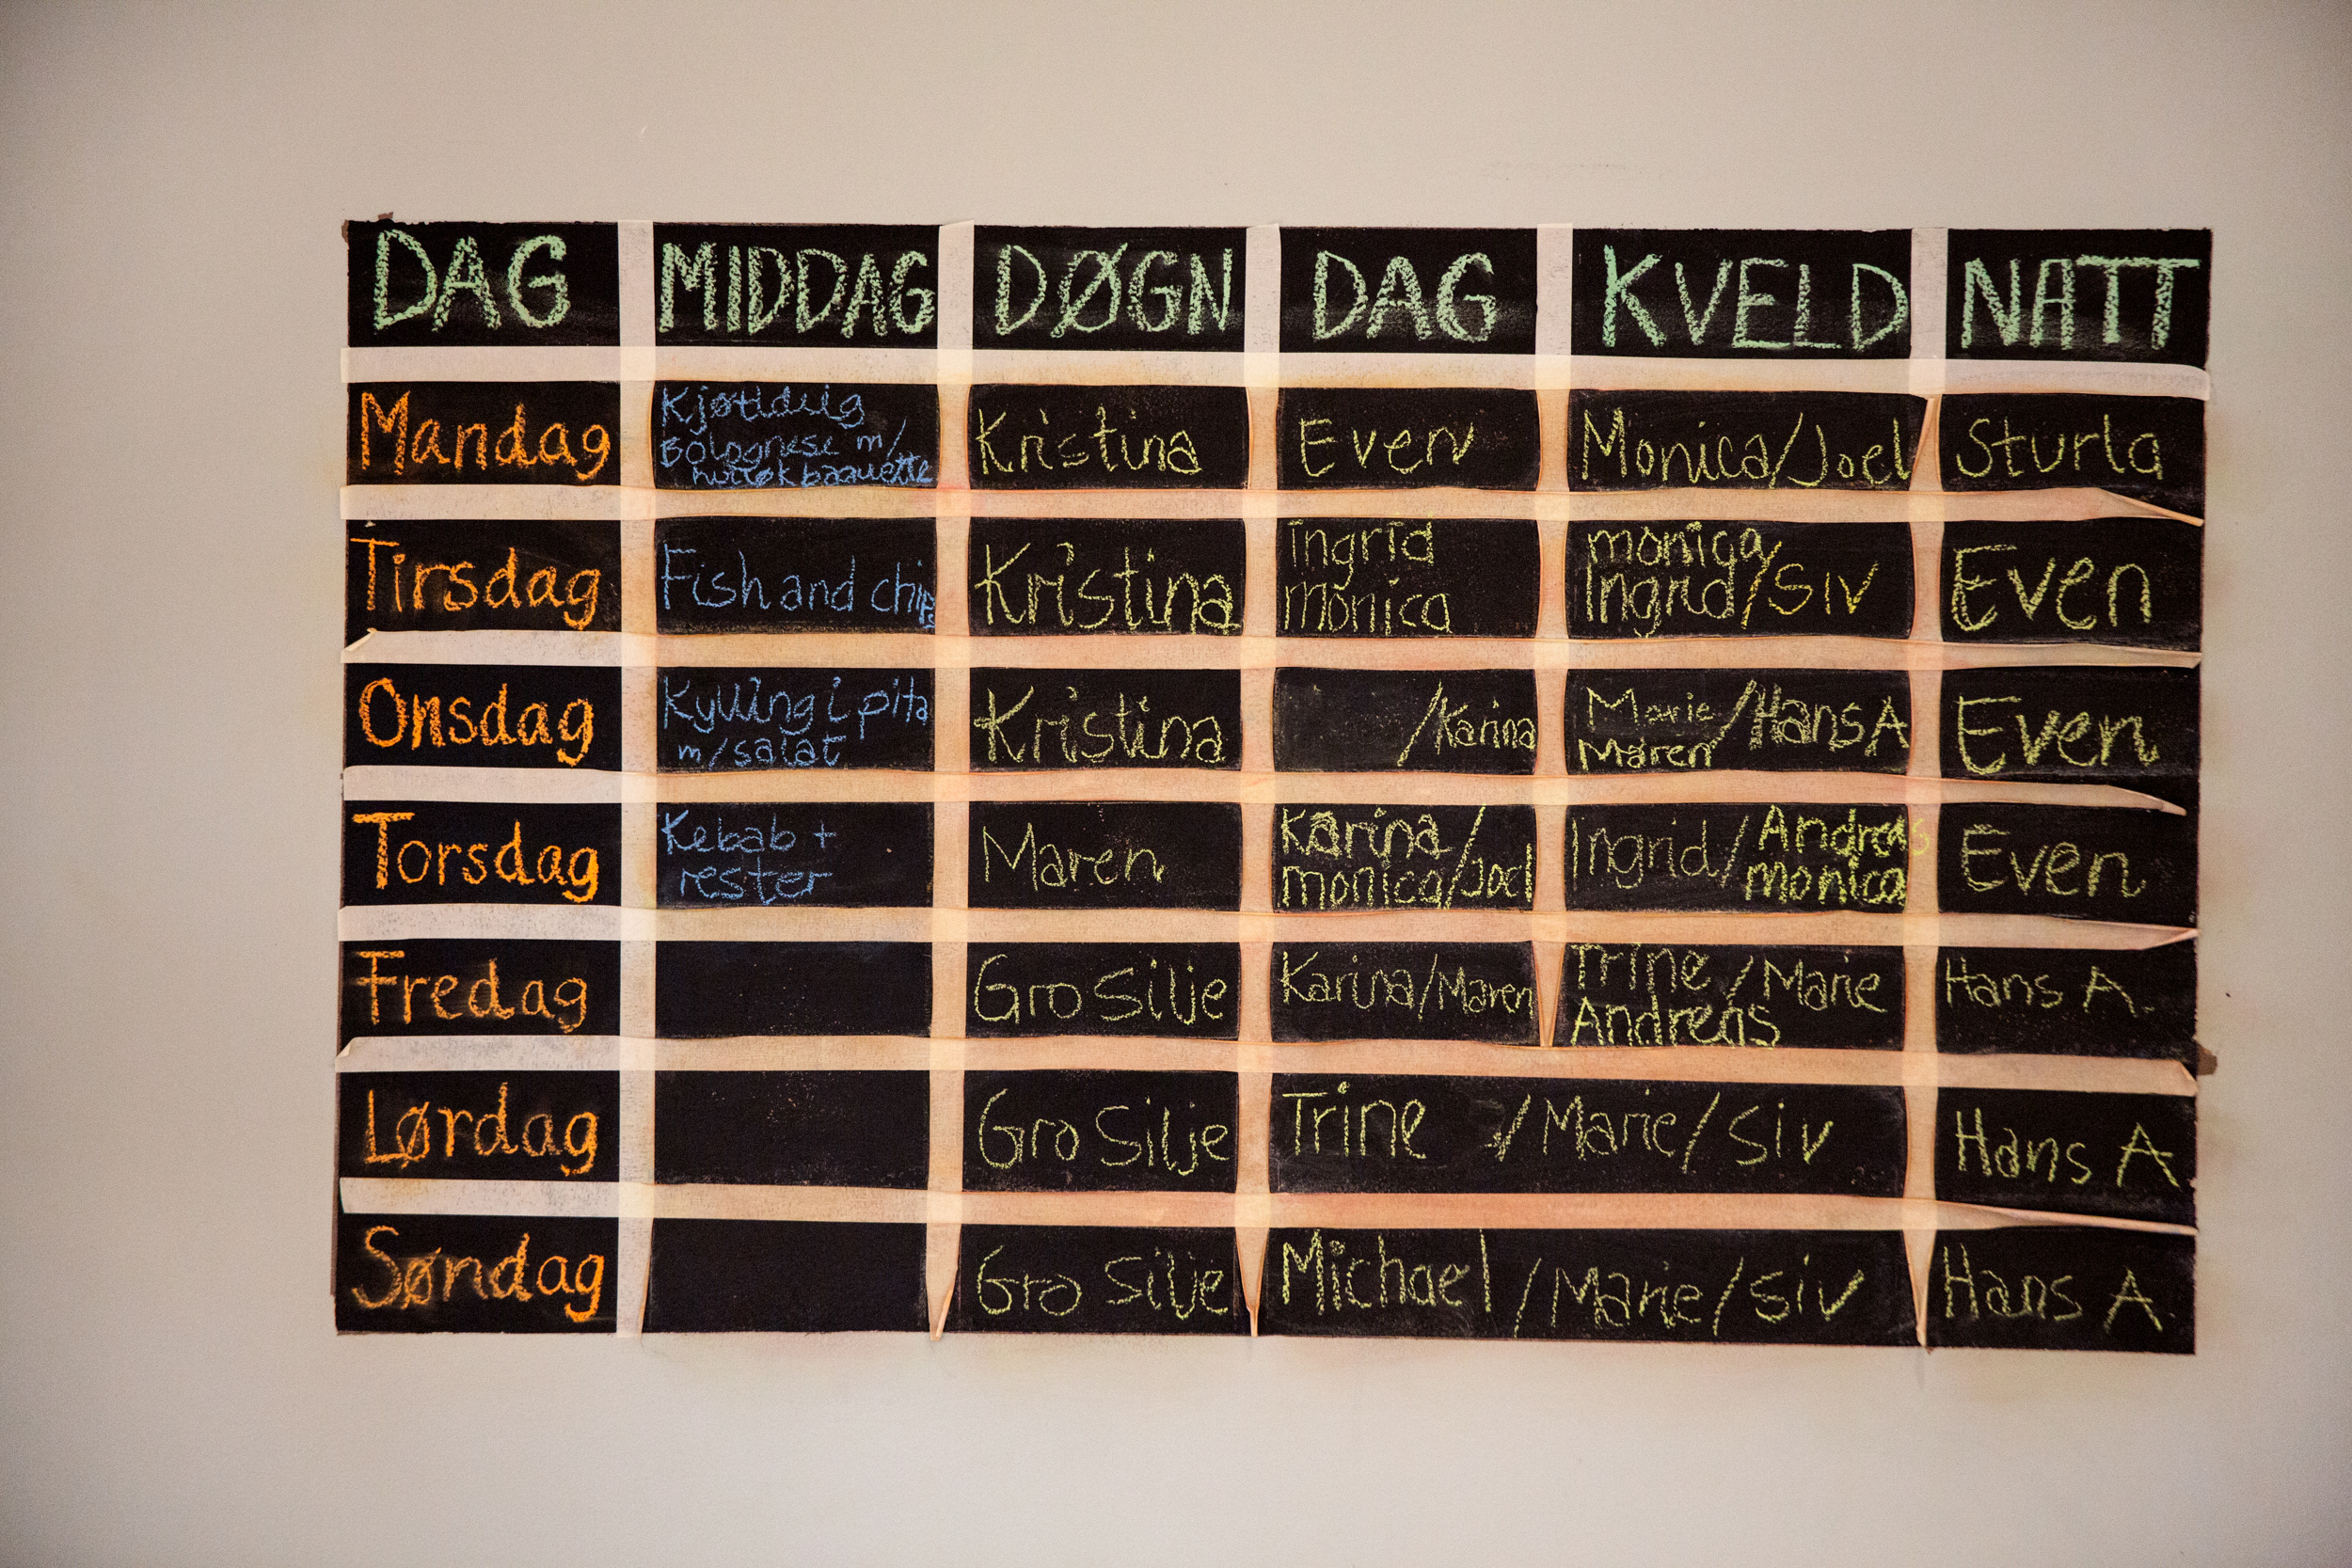 DAG MIDDAG DØGN DAG KVELD NATT
Mandag Kjøttdeig Kristina Even Monica/Joel Sturla
Bolognese m/
baguette
Tirsdag Fish and chips Kristina ingrid monica Even
monica Ingrid/Siv
Onsdag Kylling i pita Kristina /Karina Marie/Hans A Even
m/salat Maren
Torsdag Kebab + Maren Karina/ Ingrid/Andreas Even
rester monica/Joel monica
Fredag Gro Silje Karina/Maren Trine/Marie Hans A.
Andreas
Lørdag Gro Silje Trine / Marie/Siv Hans A
Søndag Gro Silje Michael/Marie/Siv Hans A.